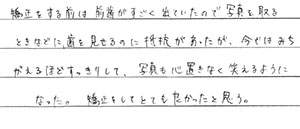 矯正をする前は前歯がすごく出ていたので写真を取る
ときなどに、歯を見せるのに抵抗があったが、今ではみち
がえるほどすっきりして、写真も心置きなく笑えるように
なった。 矯正をしてとても良かったと思う。